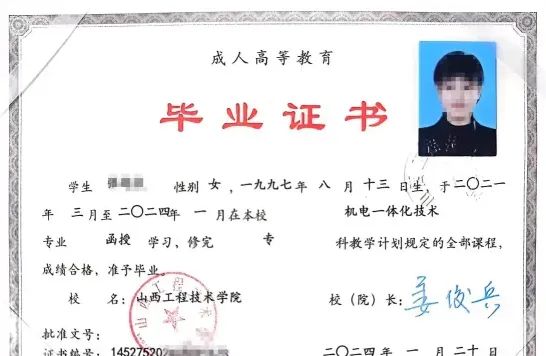 成人高等教育
毕业证书
学生 性别 女，一九九七年 八 月 十三 日生，于二〇二一
年 三月至二〇二四年 一 月在本校 机电一体化技术
专业 函授 学习，修完 专 科教学计划规定的全部课程，
成绩合格，准予毕业。
校 名：山西工程技术学院 校（院）长：姜俊兵
批准文号：
证书编号：14527520
二〇二四年 一 月 二十 日